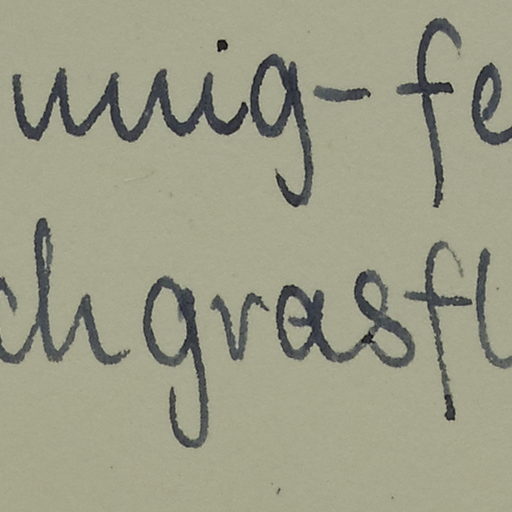 umig-fe
chgrasfl